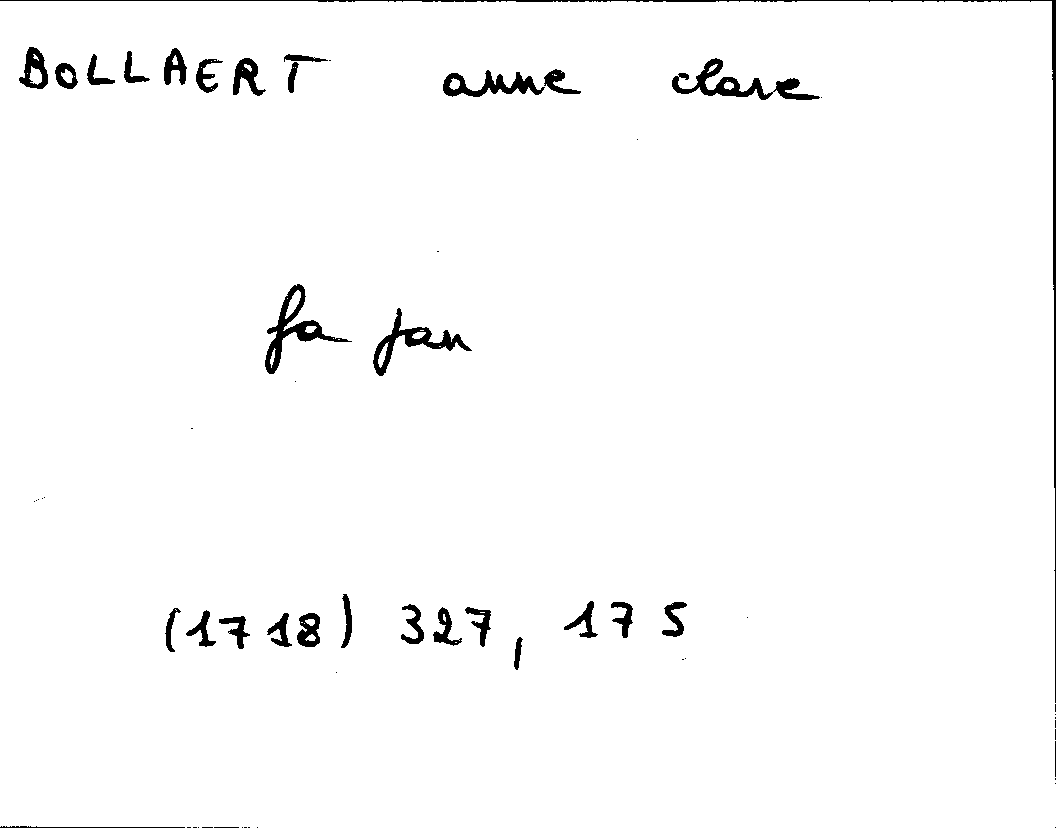 BOLLAERT anne clare
fa jan
(1718) 327, 175